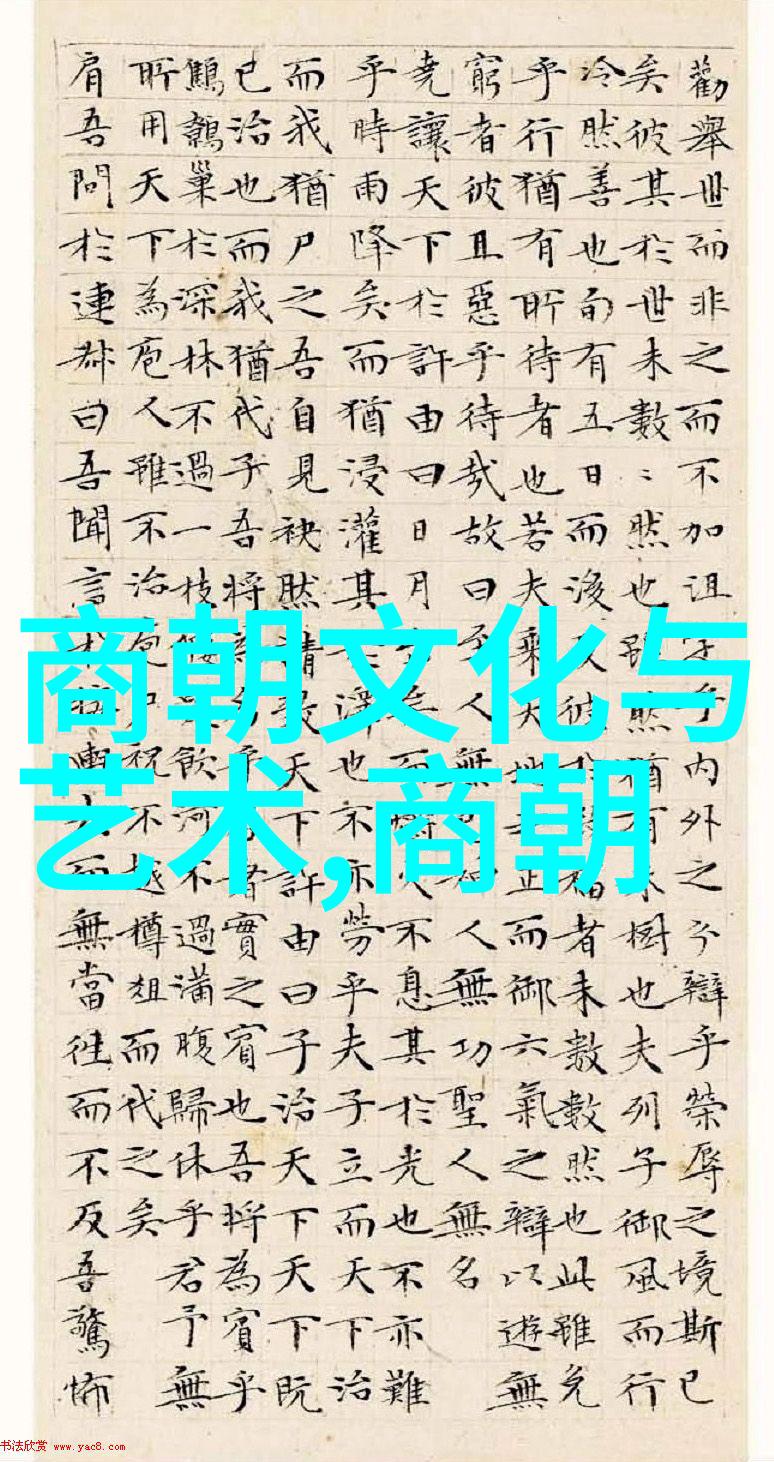 勸舉世而非之而不加沮乎內外之分辯乎榮辱之境斯已
矣彼其於世未數〻然也雖然猶有未樹也夫列子御風而行
冷然善也旬有五日而後反彼於福者未數數然也此雖免
乎行猶有所待者也若夫乘天地正而御六氣之辯以遊無
窮者彼且惡乎待哉故曰至人無人無功聖人無名
堯讓天下於許由曰日月矣而火不息其於光也不亦難
乎時雨降矣而猶浸灌其澤也不亦勞乎夫子立而天下治
而我猶尸之吾自見缺然請致天下許由曰子治天下天下既
已治也而我猶代子吾將乎者實之賓也吾將為賓乎
鷦鷯巢於深林不過一枝偃飲河不過滿腹歸休乎君予無
所用天下為庖人雖不治庖尸祝不越樽俎而代之矣
肩吾問於連叔曰吾聞言於接大而無當往而不反吾驚怖
商朝文化与
艺术,商朝
书法欣赏 www.yac8.com